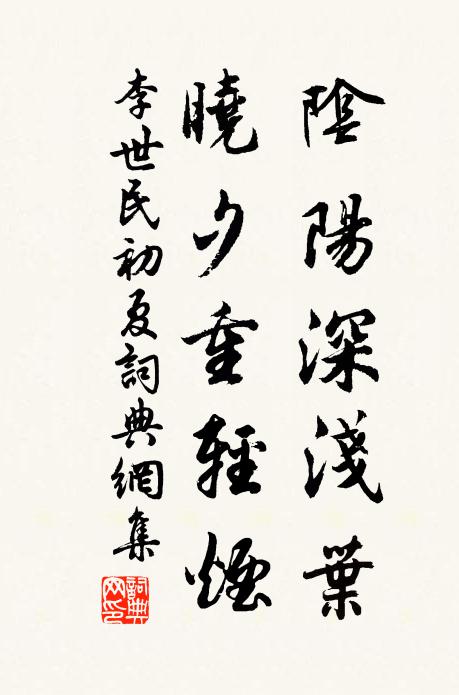 陰陽深淺葉
曉夕重輕煙
李世民初夏詞典網集
詞典網印